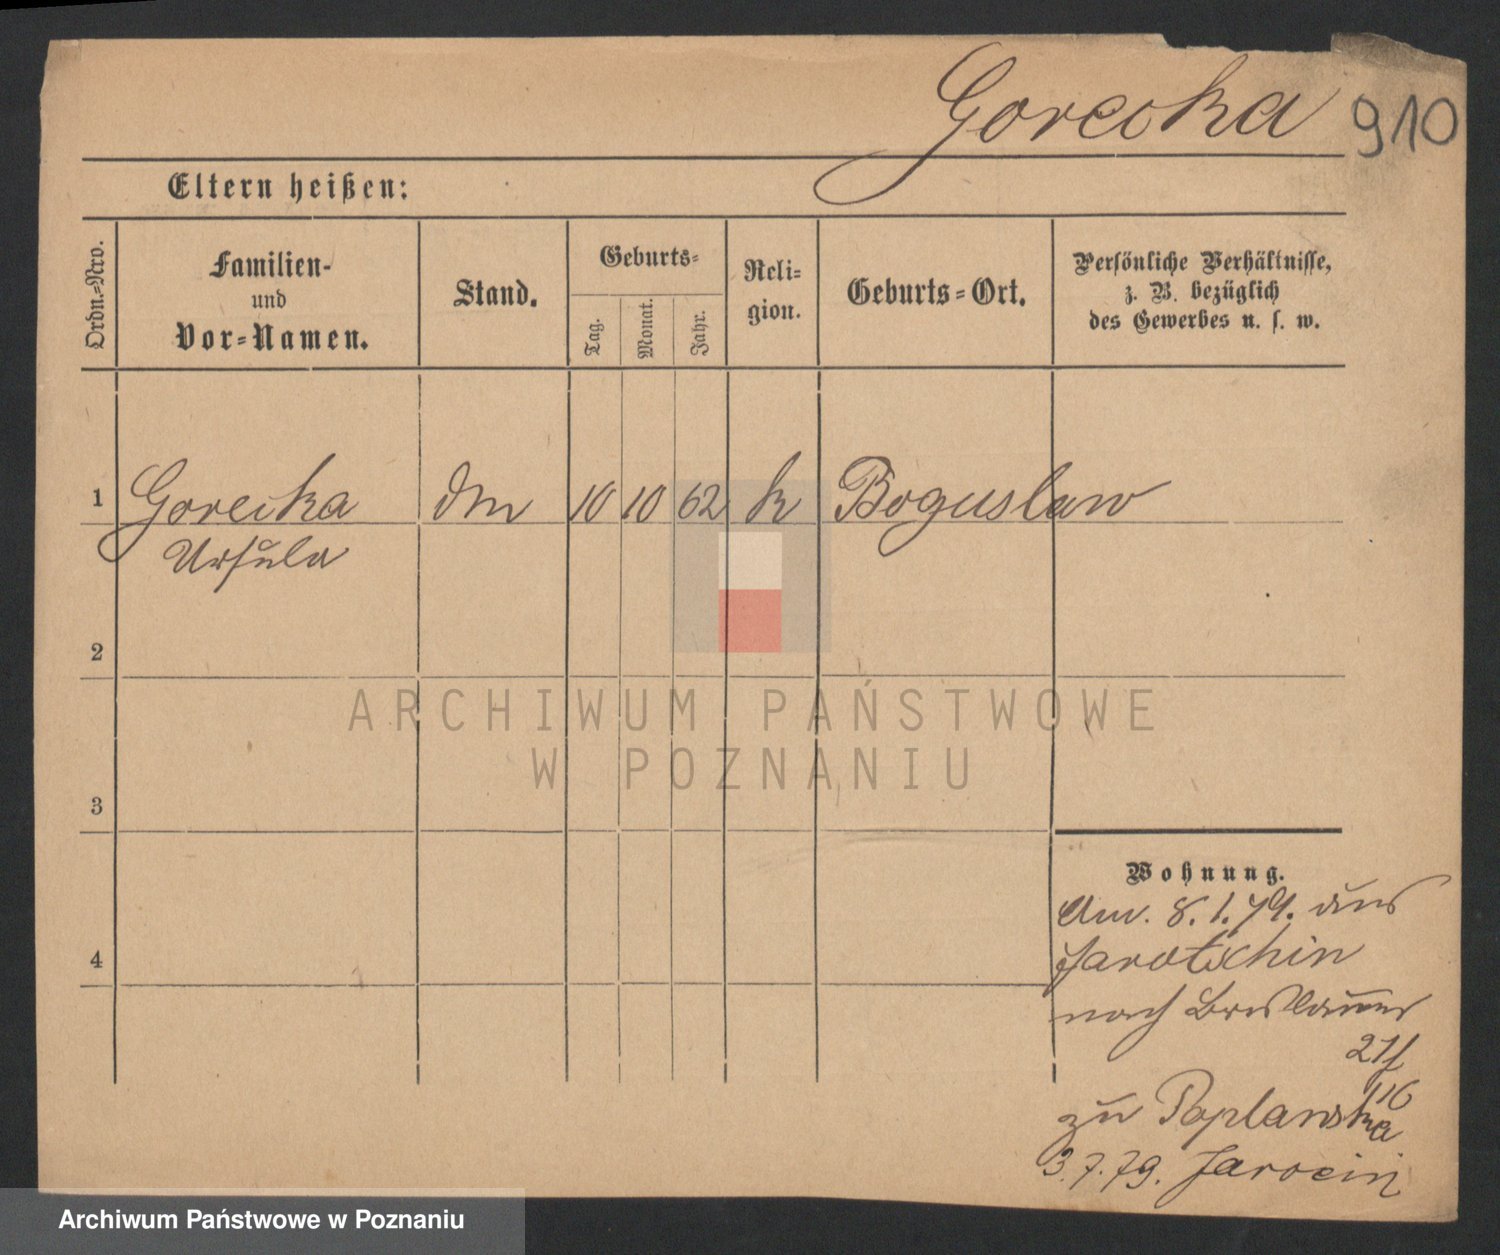 Gorecka 910
Eltern heißen:
Ordn.-Nro.
Familien-
und
Vor-Namen.
Stand.
Geburts-
Tag.
Monat.
Jahr.
Reli-
gion.
Geburts-Ort.
Persönliche Verhältnisse,
z. B. bezüglich
des Gewerbes u. s. w.
1 Gorecka 10 10 62 k Boguslaw
Ursula
2
3
4
ARCHIWUM PAŃSTWOWE
W POZNANIU
Wohnung.
8.1.79. aus
Jarotschin
nach Breslauer
zu Poplanska
3.7.79. Jarocin
Archiwum Państwowe w Poznaniu